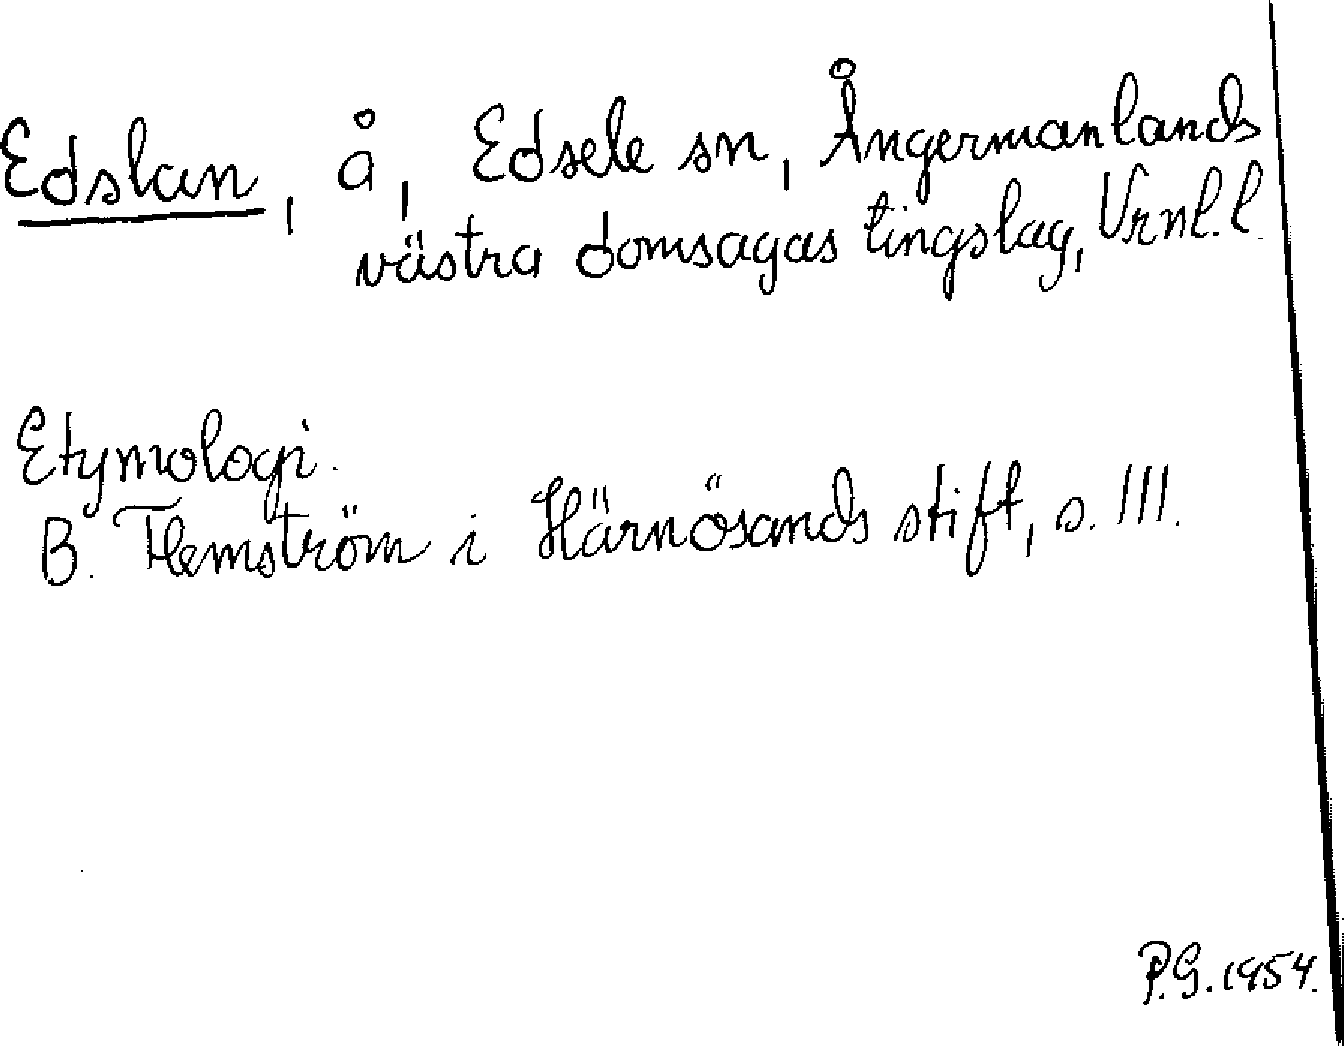 Edslan, å, Edsele sn, Ångermanlands
västra domsagas tingslag, Vrnl. l.
Etymologi.
B. Flemström i Härnösands stift, s. 111.
P.G. 1954.